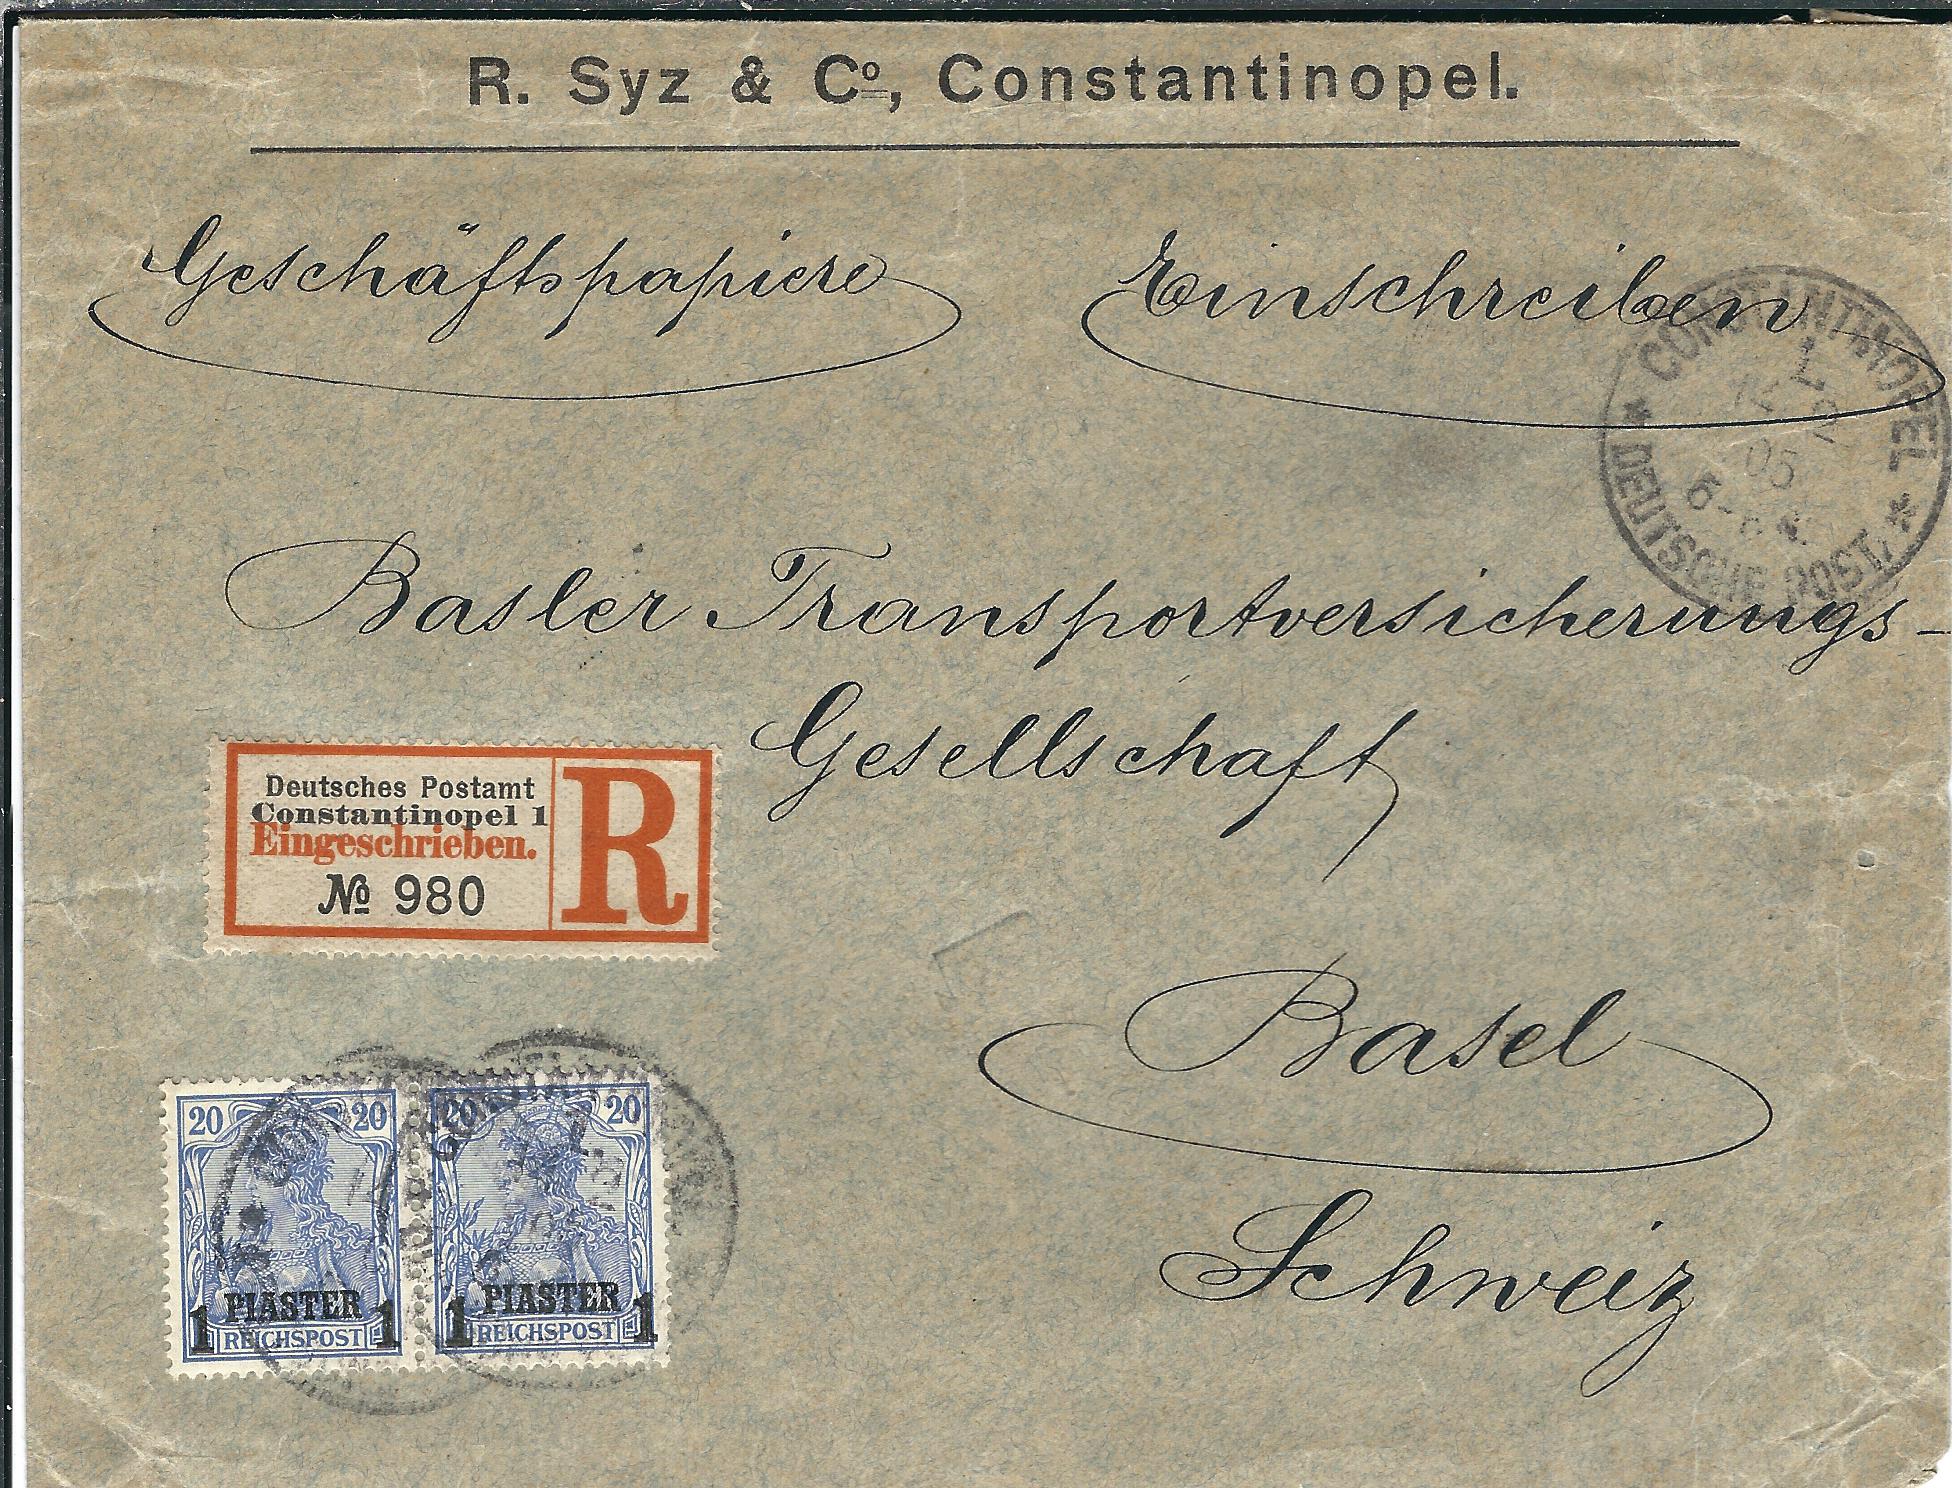 R. Syz & Cº, Constantinopel.
Geschäftspapiere
Einschreiben
CONSTANTINOPEL
1
12 2
05
* DEUTSCHE POST. *
Basler Transportversicherungs-
Gesellschaft
Deutsches Postamt
Constantinopel 1
Eingeschrieben.
№ 980
R
Basel
Schweiz
20 20
1 PIASTER 1
REICHSPOST
20 20
1 PIASTER 1
REICHSPOST